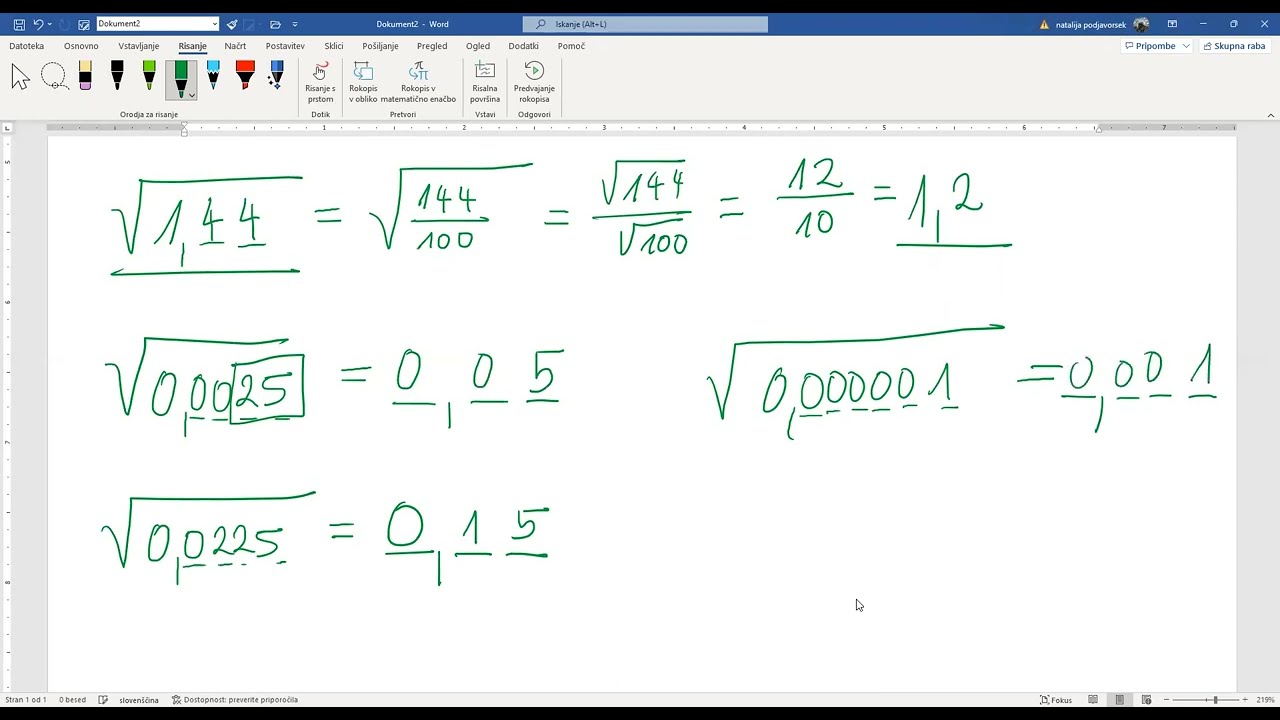 Dokument2
Dokument2 - Word
Iskanje (Alt+L)
natalija podjavorsek
Datoteka Osnovno Vstavljanje Risanje Načrt Postavitev Sklici Pošiljanje Pregled Ogled Dodatki Pomoč
Pripombe Skupna raba
Risanje s prstom
Rokopis v obliko
Rokopis v matematično enačbo
Risalna površina
Predvajanje rokopisa
Orodja za risanje Dotik Pretvori Vstavi Odgovori
1 2 3 4 5 6 7
5
6
7
8
√1,44 = √(144/100) = √144/√100 = 12/10 = 1,2
√0,0025 = 0,05
√0,000001 = 0,001
√0,0225 = 0,15
Stran 1 od 1 0 besed slovenščina Dostopnost: preverite priporočila Fokus 219%